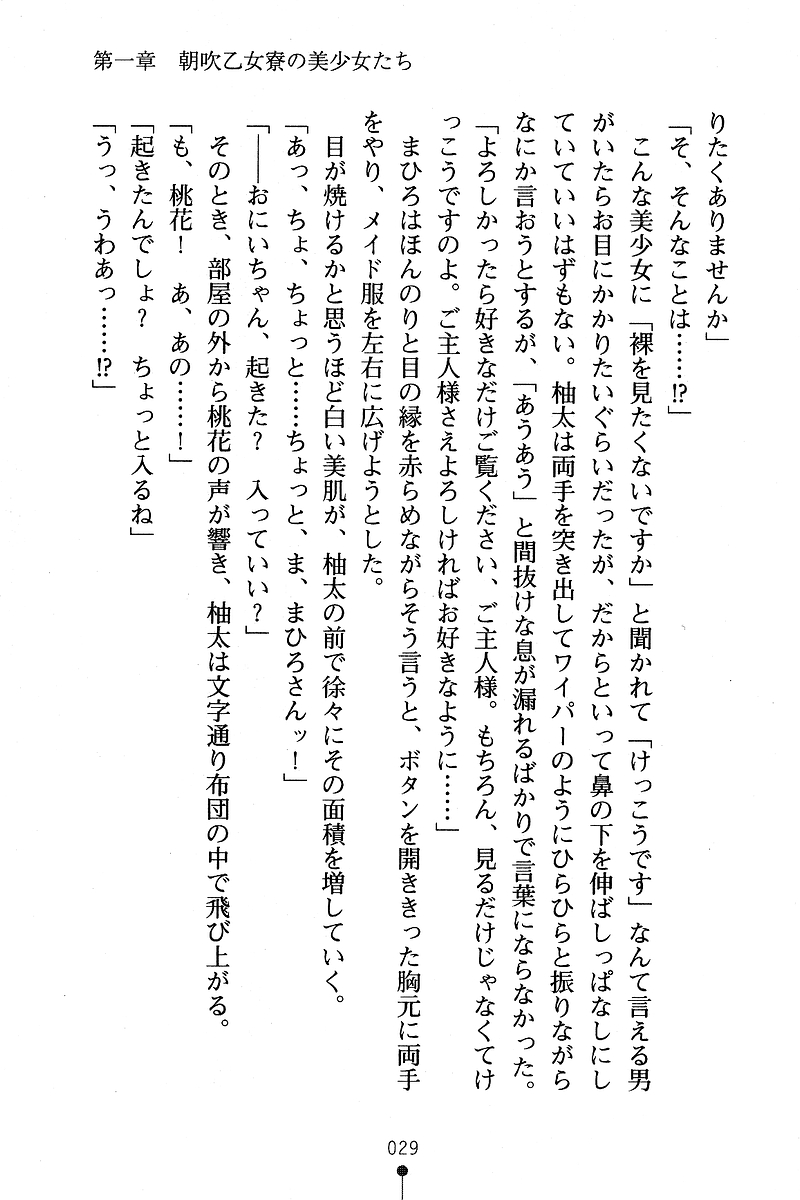 第一章　朝吹乙女寮の美少女たち
りたくありませんか」
「そ、そんなことは……!?」
　こんな美少女に「裸を見たくないですか」と聞かれて「けっこうです」なんて言える男
がいたらお目にかかりたいぐらいだったが、だからといって鼻の下を伸ばしっぱなしにし
ていていいはずもない。柚太は両手を突き出してワイパーのようにひらひらと振りながら
なにか言おうとするが、「あうあう」と間抜けな息が漏れるばかりで言葉にならなかった。
「よろしかったら好きなだけご覧ください、ご主人様。もちろん、見るだけじゃなくてけ
っこうですのよ。ご主人様さえよろしければお好きなように……」
　まひろはほんのりと目の縁を赤らめながらそう言うと、ボタンを開ききった胸元に両手
をやり、メイド服を左右に広げようとした。
　目が焼けるかと思うほど白い美肌が、柚太の前で徐々にその面積を増していく。
「あっ、ちょ、ちょっと……ちょっと、ま、まひろさんッ！」
「――おにいちゃん、起きた？　入っていい？」
　そのとき、部屋の外から桃花の声が響き、柚太は文字通り布団の中で飛び上がる。
「も、桃花！　あ、あの……！」
「起きたんでしょ？　ちょっと入るね」
「うっ、うわあっ……!?」
029